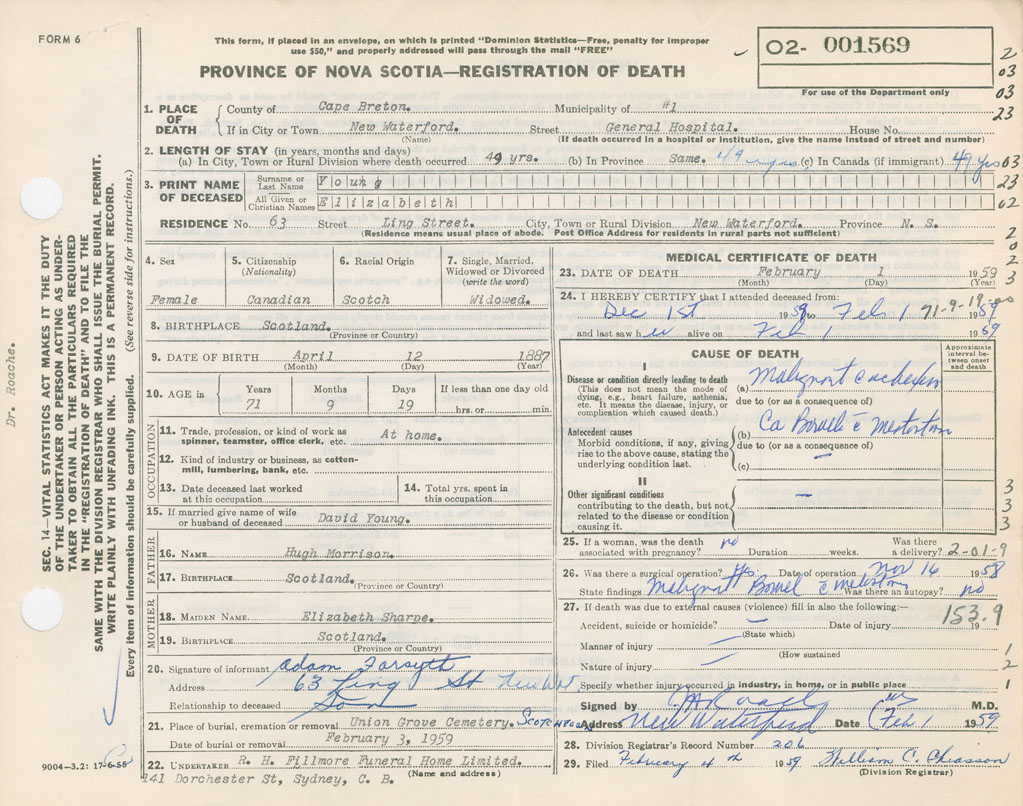 FORM 6
This form, if placed in an envelope, on which is printed "Dominion Statistics—Free, penalty for improper
use $50," and properly addressed will pass through the mail "FREE"
PROVINCE OF NOVA SCOTIA—REGISTRATION OF DEATH
02- 001569
For use of the Department only
2
03
03
23
1. PLACE OF DEATH
County of Cape Breton. Municipality of #1
If in City or Town New Waterford. Street General Hospital. House No.
(Name) (If death occurred in a hospital or institution, give the name instead of street and number)
2. LENGTH OF STAY (in years, months and days)
(a) In City, Town or Rural Division where death occurred 49 yrs. (b) In Province Same. 49 yrs (c) In Canada (if immigrant) 49 yrs 03
3. PRINT NAME OF DECEASED
Surname or Last Name Young 23
All Given or Christian Names Elizabeth 02
RESIDENCE No. 63 Street Ling Street. City, Town or Rural Division New Waterford. Province N. S.
(Residence means usual place of abode. Post Office Address for residents in rural parts not sufficient)
2
0
2
3
4. Sex
Female
5. Citizenship
(Nationality)
Canadian
6. Racial Origin
Scotch
7. Single, Married,
Widowed or Divorced
(write the word)
Widowed.
8. BIRTHPLACE Scotland.
(Province or Country)
9. DATE OF BIRTH April 12 1887
(Month) (Day) (Year)
10. AGE in
Years Months Days If less than one day old
71 9 19 hrs. or min.
OCCUPATION
11. Trade, profession, or kind of work as
spinner, teamster, office clerk, etc. At home.
12. Kind of industry or business, as cotton-
mill, lumbering, bank, etc.
13. Date deceased last worked
at this occupation
14. Total yrs. spent in
this occupation
15. If married give name of wife
or husband of deceased David Young.
FATHER
16. NAME Hugh Morrison.
17. BIRTHPLACE Scotland.
(Province or Country)
MOTHER
18. MAIDEN NAME Elizabeth Sharpe.
19. BIRTHPLACE Scotland.
(Province or Country)
20. Signature of informant Adam Forsyth
Address 63 Ling St New Wat
Relationship to deceased Son
21. Place of burial, cremation or removal Union Grove Cemetery.
Date of burial or removal February 3, 1959
22. UNDERTAKER R. H. Fillmore Funeral Home Limited.
(Name and address)
141 Dorchester St, Sydney, C. B.
9004-3.2: 17-6-55
MEDICAL CERTIFICATE OF DEATH
23. DATE OF DEATH February 1 1959
(Month) (Day) (Year)
24. I HEREBY CERTIFY that I attended deceased from:
Dec 1st 1959 to Feb 1 1959
71-9-19-
and last saw her alive on Feb 1 1959
CAUSE OF DEATH
Approximate
interval be-
tween onset
and death
I
Disease or condition directly leading to death
(This does not mean the mode of
dying, e.g., heart failure, asthenia,
etc. It means the disease, injury, or
complication which caused death.)
(a) Malignant cachexia
due to (or as a consequence of)
Antecedent causes
Morbid conditions, if any, giving
rise to the above cause, stating the
underlying condition last.
(b) Ca Bowel c̄
due to (or as a consequence of)
(c) —
II
Other significant conditions
contributing to the death, but not
related to the disease or condition
causing it.
—
3
3
3
25. If a woman, was the death
associated with pregnancy? no Duration weeks. Was there
a delivery? 2-01-9
26. Was there a surgical operation? Yes. Date of operation Nov 16 1958
State findings Malignant Bowel c̄ Was there an autopsy? no
27. If death was due to external causes (violence) fill in also the following:—
153.9
Accident, suicide or homicide? — Date of injury 19
(State which)
Manner of injury — 1
(How sustained
Nature of injury — 2
Specify whether injury occurred in industry, in home, or in public place 1
Signed by M.D.
Address New Waterford Date Feb. 1 1959
28. Division Registrar's Record Number 206
29. Filed February 4th 1959 William C. Chiasson
(Division Registrar)
SEC. 14—VITAL STATISTICS ACT MAKES IT THE DUTY
OF THE UNDERTAKER OR PERSON ACTING AS UNDER-
TAKER TO OBTAIN ALL THE PARTICULARS REQUIRED
IN THE "REGISTRATION OF DEATH" AND FILE THE
SAME WITH THE DIVISION REGISTRAR WHO SHALL ISSUE THE BURIAL PERMIT.
WRITE PLAINLY WITH UNFADING INK. THIS IS A PERMANENT RECORD.
Every item of information should be carefully supplied. (See reverse side for instructions.)
Dr. Roache.